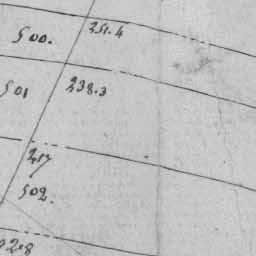 251.4
500.
238.3
501
217
502.
2.8